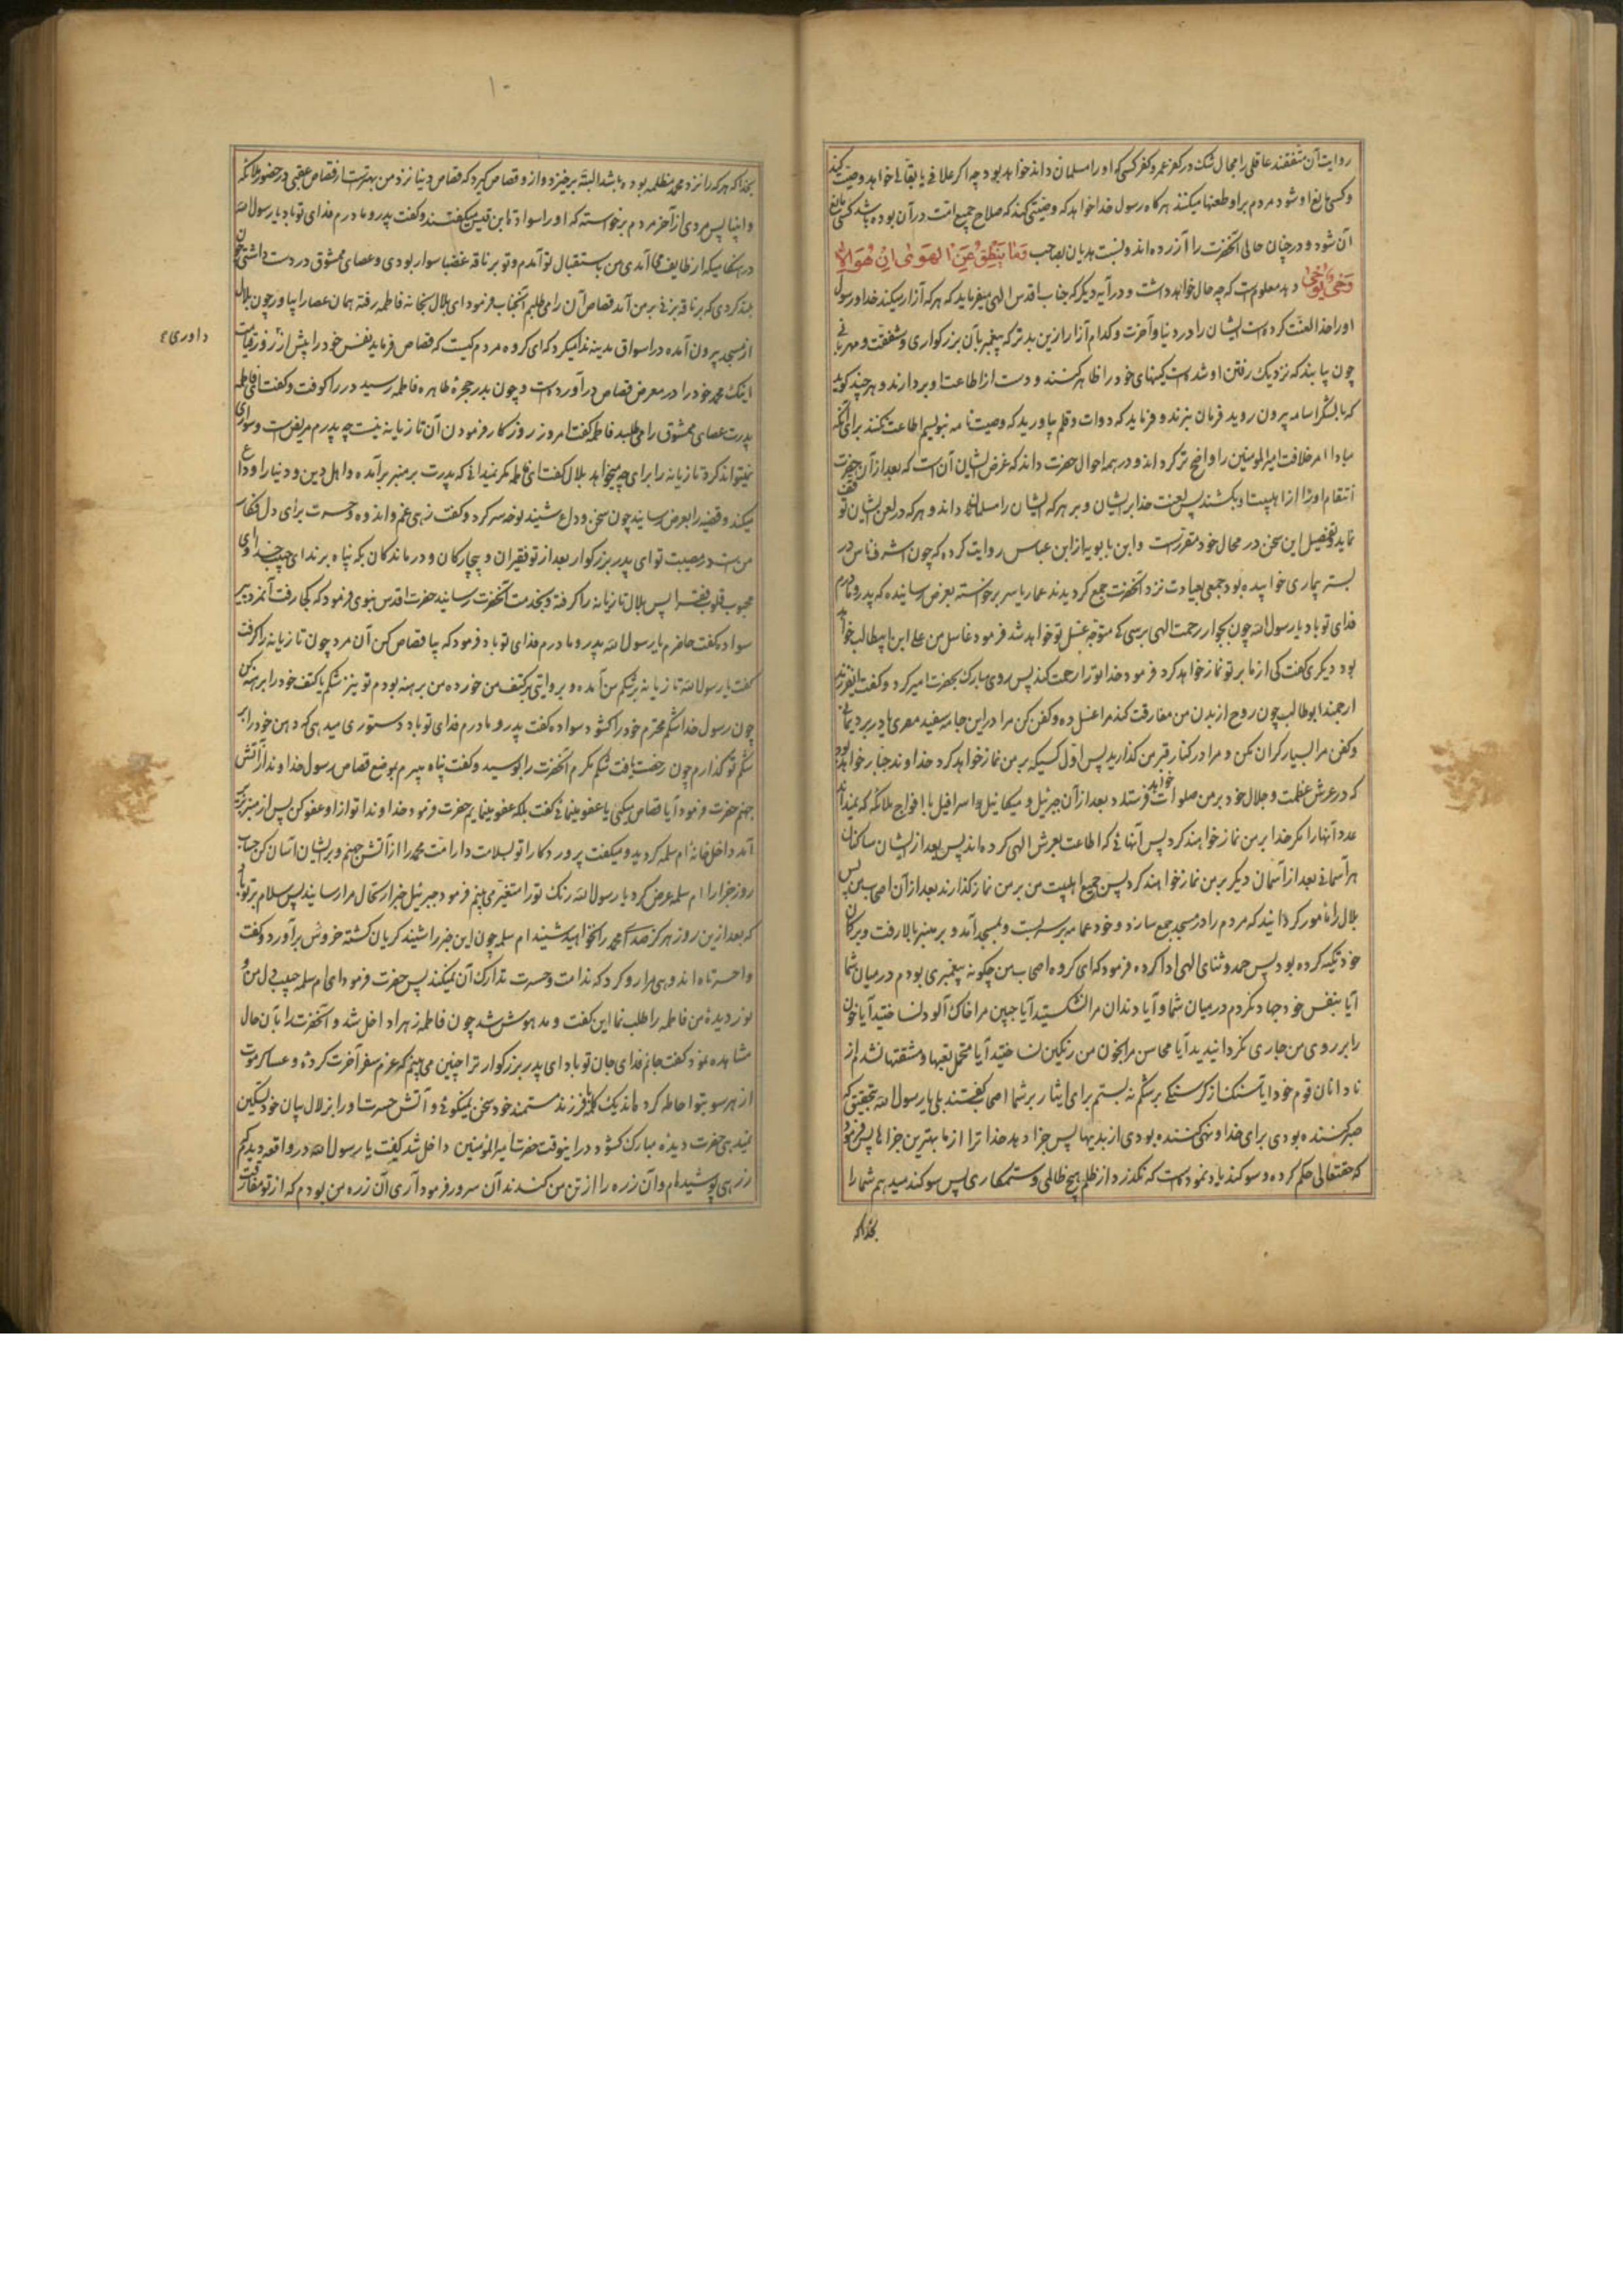 روایت آن متفقند عاقلی را مجال شک در کفر عمر و کفر کسی که او را مسلمان داند خواهد بود چه اکر علافی یا بقالی خواهد وصیت کند
و کسی مانع او شود مردم بر او طعنها میکنند هرکاه رسول خدا خواهد که وصیتی کند که صلاح جمیع امت در آن بوده باشد کسی مانع
آن شود و در چنان حالی آنحضرت را آزرده اند و نسبت هذیان بصاحب وَمَا يَنْطِقُ عَنِ الْهَوٰى اِنْ هُوَ اِلَّا
وَحْىٌ يُوحٰى دهد معلومست که چه حال خواهد داشت و در آیه دیکر که جناب اقدس الهی میفرماید که هرکه آزار میکند خدا و رسول
او را خدا لعنت کرده است ایشان را در دنیا و آخرت و کدام آزار ازین بدتر که پیغمبر بآن بزرکواری و شفقت و مهربانی
چون یابند که نزدیک رفتن او شده است کینهای خود را ظاهر کنند و دست از اطاعت او بردارند و هرچند کوید
که با لشکر اسامه بیرون روید فرمان نبرند و فرماید که دوات و قلم بیاورید که وصیت نامه بنویسم اطاعت نکنند برای آنکه
مبادا امر خلافت امیرالمومنین را واضح تر کرداند و در همه احوال حضرت داند که غرض ایشان آن است که بعد از آن حضرت
انتقام او را از اهلبیت او بکشند پس لعنت خدا بر ایشان و بر هر که ایشان را مسلمان داند و هر که در لعن ایشان توقف
نماید و تفصیل این سخن در محال خود مقرر است و ابن بابویه از ابن عباس روایت کرده که چون اشرف ناس در
بستر بیماری خوابیده بود جمعی بعیادت نزد آنحضرت جمع کردیدند عمار یاسر برخواسته بعرض رسانیده که پدر و مادرم
فدای تو باد یا رسول الله چون بجوار رحمت الهی برسی که متوجه غسل تو خواهد شد فرمود غاسل من علی ابن ابیطالب خواهد
بود دیکری کفت کی از ما بر تو نماز خواهد کرد فرمود خدا تو را رحمت کند پس روی مبارک بحضرت امیر کرد و کفت ایفرزند
ارجمند ابوطالب چون روح از بدن من مفارقت کند مرا غسل ده و کفن کن مرا در این جامه سفید مصری یا در برد یمانی
و کفن مرا بسیار کران مکن و مرا در کنار قبر من کذارید پس اول کسیکه بر من نماز خواهد کرد خداوند جبار خواهد بود
که در عرش عظمت و جلال خود بر من صلوات خواهد فرستاد بعد از آن جبرئیل و میکائیل و اسرافیل با افواج ملائکه که نمیداند
عدد آنها را مکر خدا بر من نماز خواهند کرد پس آنهائی که اطاعت بعرش الهی کرده اند پس بعد از ایشان ساکنان
هر آسمانی بعد از آسمان دیکر بر من نماز خواهند کرد پس جمیع اهلبیت من بر من نماز کذارند بعد از آن اصحاب من پس
بلال را مامور کردانید که مردم را در مسجد جمع سازد و خود عمامه بر سر بست و بمسجد آمد و بر منبر بالا رفت و بر کمان
خود تکیه کرده بود پس حمد و ثنای الهی ادا کرده فرمود که ای کروه اصحاب من چکونه پیغمبری بودم در میان شما
آیا بنفس خود جهاد نکردم در میان شما و آیا دندان مرا نشکستید آیا جبین مرا خاک آلود نساختید آیا خون
را بر روی من جاری نکردانیدید آیا محاسن مرا بخون من رنکین نساختید آیا متحمل تعبها و مشقتها نشدم از
نادانان قوم خود ایا سنک از کرسنکی بر شکم نه بستم برای ایثار بر شما اصحاب کفتند بلی یا رسول الله بتحقیق که
صبر کننده بودی برای خدا و نهی کننده بودی از بدیها پس جزا دهد خدا ترا از ما بهترین جزاها پس فرمود
که حقتعالی حکم کرده و سوکند یاد نموده است که نکذرد از ظلم هیچ ظالمی و ستمکاری پس سوکند میدهم شما را
بخدا که
۱۰
بخدا که هر که را نزد محمد مظلمه بوده باشد البته برخیزد و از و قصاص کیرد که قصاص دنیا نزد من بهتر است از قصاص عقبی در حضور ملائکه
و انبیا پس مردی از آخر مردم برخواسته که او را سوادة ابن قیس میکفتند و کفت پدر و مادرم فدای تو باد یا رسول الله
در هنکامیکه از طایف می آمدی من باستقبال تو آمدم و تو بر ناقه غضبا سوار بودی و عصای ممشوق در دست داشتی چون
بلند کردی که بر ناقه بزنی بر من آمد قصاص آن را می طلبم آنجناب فرمود ای بلال بخانه فاطمه رفته همان عصا را بیاور چون بلال
از مسجد بیرون آمده در اسواق مدینه ندا میکرد که ای کروه مردم کیست که قصاص فرماید نفس خود را پیش از روز قیامت
داوری ع
اینک محمد خود را در معرض قصاص درآورده است و چون بدر حجره طاهره فاطمه رسید در را کوفت و کفت ای فاطمه
پدرت عصای ممشوق را می طلبد فاطمه کفت امروز روز کار فرمودن آن تازیانه نیست چه پدرم مریض است و سواری
نمیتواند کرد تازیانه را برای چه میخواهد بلال کفت ای فاطمه مکر نمیدانی که پدرت بر منبر برآمده و اهل دین و دنیا را وداع
میکند و قضیه را بعرض رسانید چون سخن وداع شنید نوحه سر کرد و کفت زهی غم و اندوه و حسرت برای دل فکار
من است در مصیبت تو ای پدر بزرکوار بعد از تو فقیران و بیچارکان و درماندکان بکه پناه برند ای حبیب خدا وای
محبوب قلوب فقرا پس بلال تازیانه را کرفته و بخدمت آنحضرت رسانید حضرت اقدس نبوی فرمود که کجا رفت آنمرد پیر
سواده کفت حاضرم یا رسول الله پدر و مادرم فدای تو باد فرمود که بیا قصاص کن آن مرد چون تازیانه را کرفت
کفت یا رسول الله تازیانه بر شکم من آمده و بروایتی بر کتف من خورده من برهنه بودم تو نیز شکم یا کتف خود را برهنه کن
چون رسول خدا شکم محترم خود را کشود سواده کفت پدر و مادرم فدای تو باد دستوری میدهی که دهن خود را بر
شکم تو کذارم چون رخصت یافت شکم مکرم آنحضرت را بوسید و کفت پناه میبرم بموضع قصاص رسول خداوند از آتش
جهنم حضرت فرمود آیا قصاص میکنی یا عفو مینمائی کفت بلکه عفو مینمایم حضرت فرمود خداوندا تو از او عفو کن پس از منبر بزیر
آمد داخل خانه ام سلمه کردید و میکفت پروردکارا تو بسلامت دار امت محمد را از آتش جهنم و بر ایشان آسان کن حساب
روز جزا را ام سلمه عرض کرد یا رسول الله رنک تو را متغیر می بینم فرمود جبرئیل خبر ارتحال مرا رسانید پس سلام بر تو باد
که بعد ازین روز هرکز صدای محمد را نخواهید شنید ام سلمه چون این خبر را شنید کریان کشته خروش برآورد و کفت
واحسرتاه اندوهی مرا رو کرد که ندامت و حسرت تدارک آن نمیکند پس حضرت فرمود ای ام سلمه حبیب دل من و
نور دیده من فاطمه را طلب نما این کفت و مدهوش شد چون فاطمه زهرا داخل شد و آنحضرت را بآن حال
مشاهده نمود کفت جانم فدای جان تو باد ای پدر بزرکوار ترا چنین می بینم که عزم سفر آخرت کرده و عساکر موت
از هر سو بتو احاطه کرده اند یک کلمه با فرزند مستمند خود سخن نمیکوئی و آتش حسرت او را بزلال بیان خود تسکین
نمیدهی حضرت دیده مبارک کشود در اینوقت حضرت امیرالمؤمنین داخل شد کفت یا رسول الله در واقعه دیدم که
زرهی پوشیده ام و آن زره را از تن من کندند آن سرور فرمود آری آن زره من بودم که از تو مفارقت